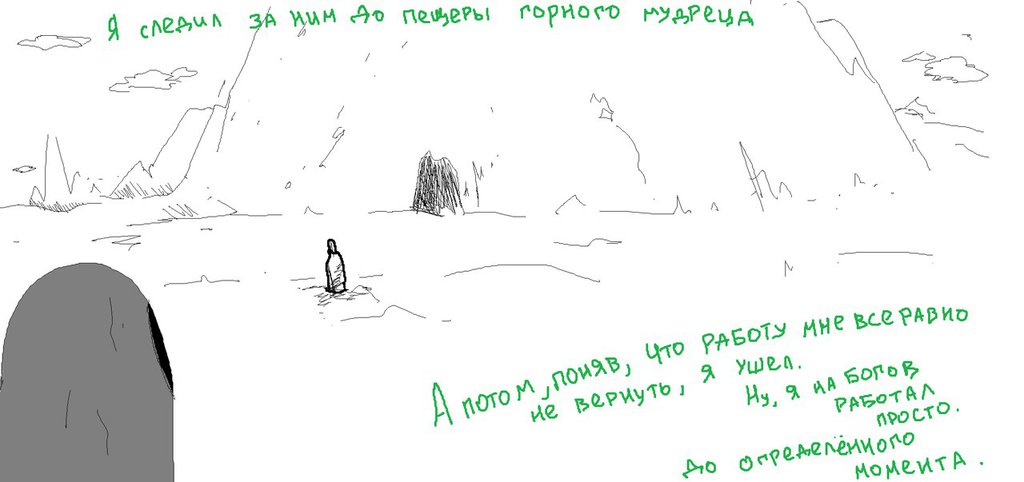 Я следил за ним до пещеры горного мудреца
А потом, поняв, что работу мне все равно
не вернуть, я ушел.
Ну, я на богов
работал
просто.
до определённого
момента.